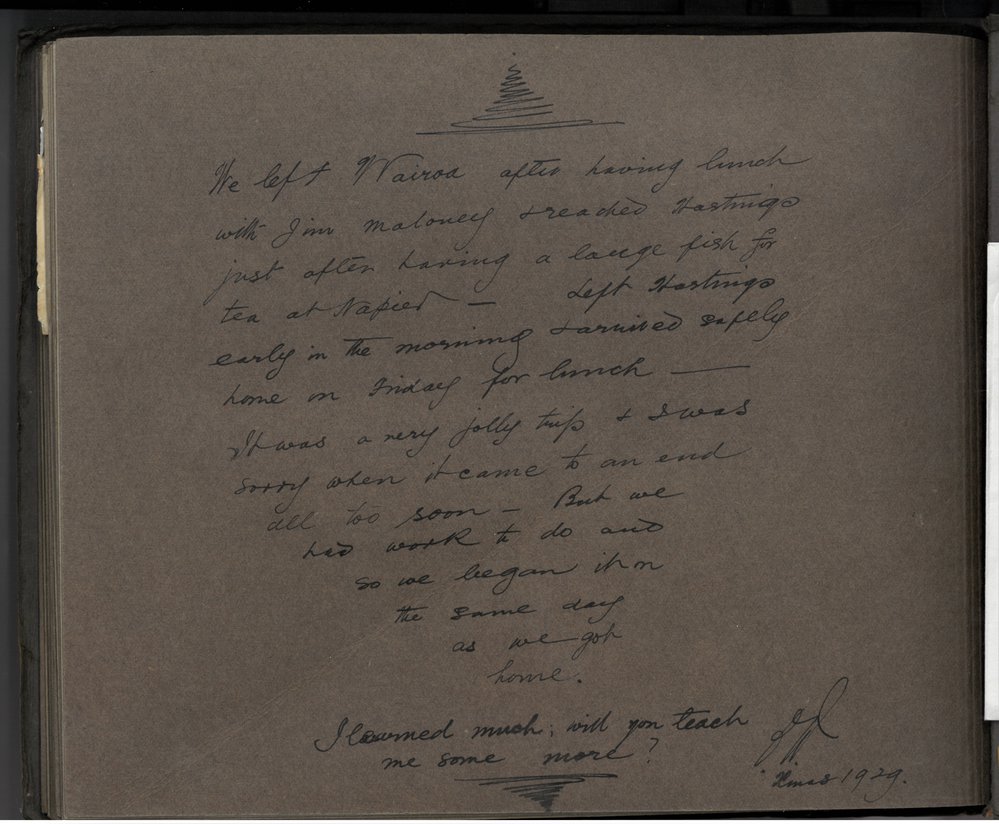 We left Wairoa after having lunch
with Jim Maloney & reached Hastings
just after having a large fish for
tea at Napier — Left Hastings
early in the morning & arrived safely
home on Friday for lunch —
It was a very jolly trip & I was
sorry when it came to an end
all too soon — But we
had work to do and
so we began it on
the same day
as we got
home.
I learned much; will you teach
me some more?
Xmas 1929.